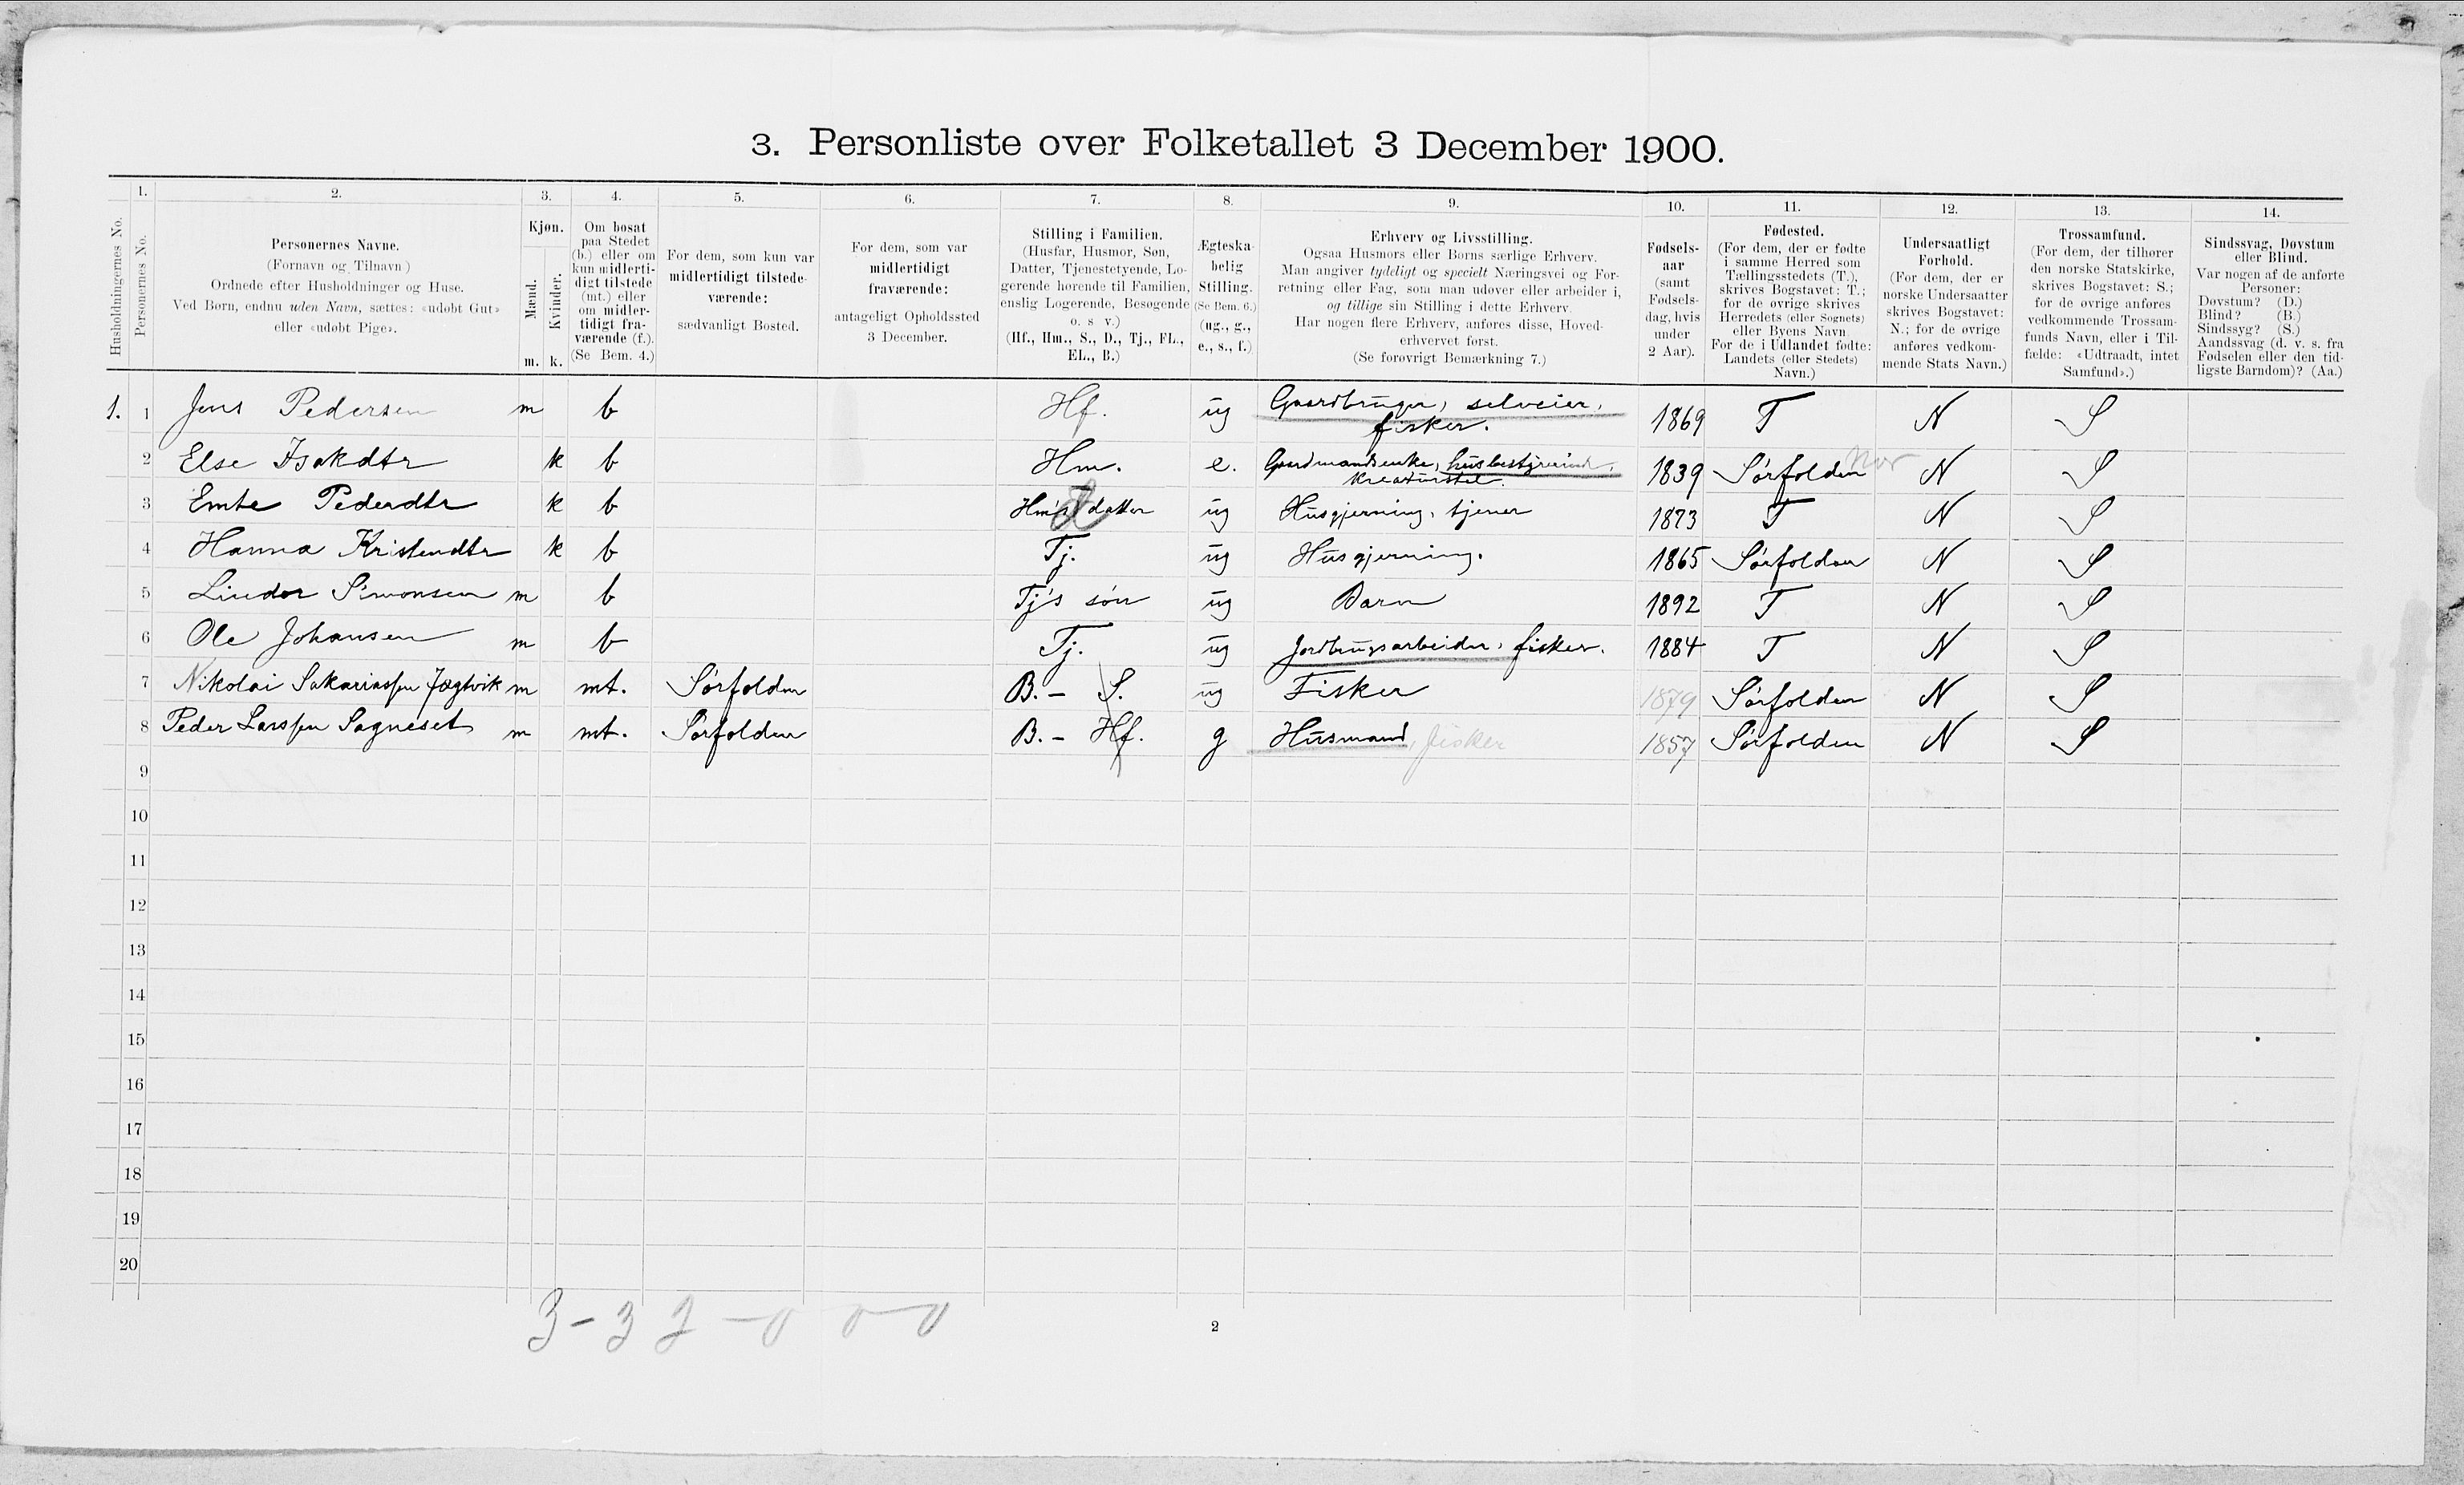 3. Personliste over Folketallet 3 December 1900.
1. 2. 3. 4. 5. 6. 7. 8. 9. 10. 11. 12. 13. 14.
Husholdningernes No.
Personernes No.
Personernes Navne.
(Fornavn og Tilnavn)
Ordnede efter Husholdninger og Huse.
Ved Børn, endnu uden Navn, sættes: «udøbt Gut»
eller «udøbt Pige».
Kjøn.
Mænd.
Kvinder.
m. k.
Om bosat
paa Stedet
(b.) eller om
kun midlerti-
digt tilstede
(mt.) eller
om midler-
tidigt fra-
værende (f.).
(Se Bem. 4.)
For dem, som kun var
midlertidigt tilstede-
værende:
sædvanligt Bosted.
For dem, som var
midlertidigt
fraværende:
antageligt Opholdssted
3 December.
Stilling i Familien.
(Husfar, Husmor, Søn,
Datter, Tjenestetyende, Lo-
gerende hørende til Familien,
enslig Logerende, Besøgende
o. s v.)
(Hf., Hm., S., D., Tj., FL.,
EL., B.)
Ægteska-
belig
Stilling.
(Se Bem. 6.)
(ug., g.,
e., s., f.)
Erhverv og Livsstilling.
Ogsaa Husmors eller Børns særlige Erhverv.
Man angiver tydeligt og specielt Næringsvei og For-
retning eller Fag, som man udøver eller arbeider i,
og tillige sin Stilling i dette Erhverv.
Har nogen flere Erhverv, anføres disse, Hoved-
erhvervet først.
(Se forøvrigt Bemærkning 7.)
Fødsels-
aar
(samt
Fødsels-
dag, hvis
under
2 Aar).
Fødested.
(For dem, der er fødte
i samme Herred som
Tællingsstedets (T.),
skrives Bogstavet: T.;
for de øvrige skrives
Herredets (eller Sognets)
eller Byens Navn.
For de i Udlandet fødte:
Landets (eller Stedets)
Navn.)
Undersaatligt
Forhold.
(For dem, der er
norske Undersaatter
skrives Bogstavet:
N.; for de øvrige
anføres vedkom-
mende Stats Navn.)
Trossamfund.
(For dem, der tilhører
den norske Statskirke,
skrives Bogstavet: S.;
for de øvrige anføres
vedkommende Trossam-
funds Navn, eller i Til-
fælde: «Udtraadt, intet
Samfund».)
Sindssvag, Døvstum
eller Blind.
Var nogen af de anførte
Personer:
Døvstum? (D.)
Blind? (B.)
Sindssyg? (S.)
Aandssvag (d. v. s. fra
Fødselen eller den tid-
ligste Barndom)? (Aa.)
1. 1 Jens Pedersen m b Hf. ug Gaardbruger, selveier, fisker. 1869 T N S
2 Else Isakdtr k b Hm. e. Gaardmandsenke, husbestyrerind, kreaturstel 1839 Sørfolden N S
3 Emte Pederdtr k b Hm's datter ug Husgjerning, tjener 1873 T N S
4 Hanna Kristendtr k b Tj. ug Husgjerning. 1865 Sørfolden N S
5 Lindor Simonsen m b Tj's søn ug Barn 1892 T N S
6 Ole Johansen m b Tj. ug Jordbrugsarbeider, fisker. 1884 T N S
7 Nikolai Sakariassen Jægtvik m mt. Sørfolden B. - S. ug Fisker 1879 Sørfolden N S
8 Peder Larssen Sagneset m mt. Sørfolden B. - Hf. g Husmand, fisker 1857 Sørfolden N S
9
10
11
12
13
14
15
16
17
18
19
20
2